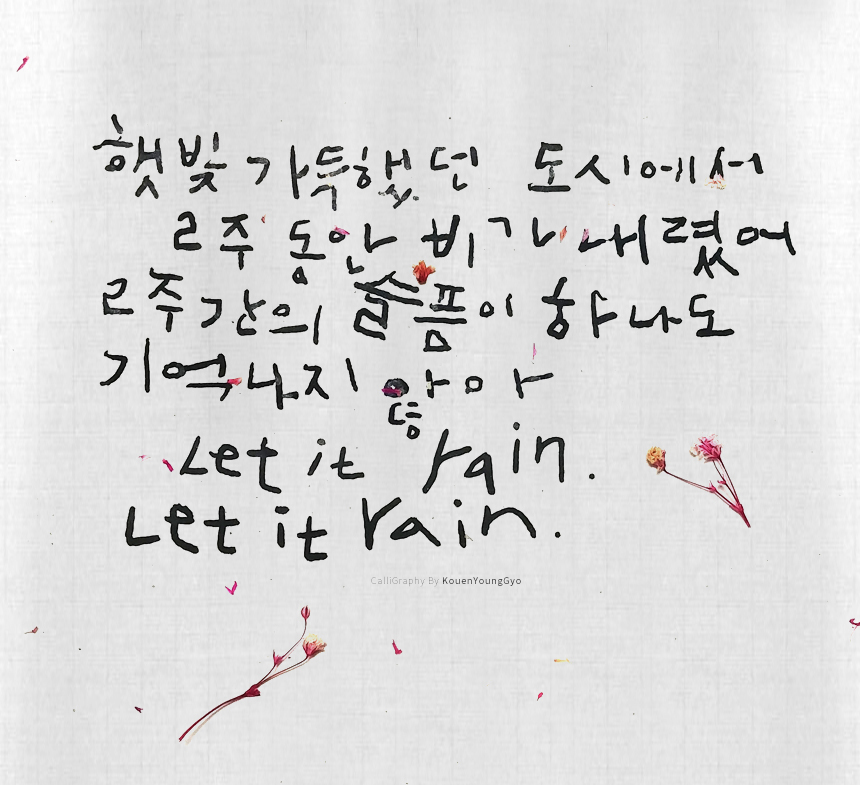 햇빛 가득했던 도시에서
2주 동안 비가 내렸어
2주간의 슬픔이 하나도
기억나지 않아
Let it rain.
Let it rain.
CalliGraphy By KouenYoungGyo